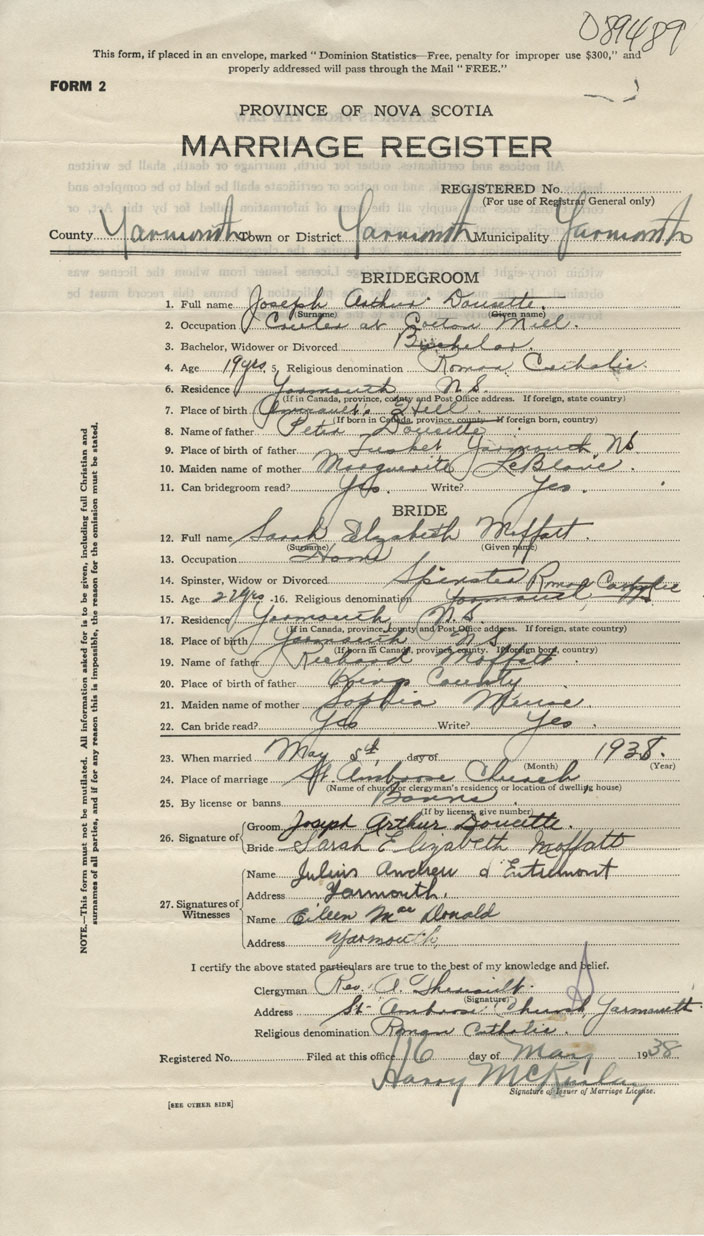 059489
This form, if placed in an envelope, marked "Dominion Statistics—Free, penalty for improper use $300," and
properly addressed will pass through the Mail "FREE."
FORM 2
PROVINCE OF NOVA SCOTIA
MARRIAGE REGISTER
REGISTERED No.
(For use of Registrar General only)
County Yarmouth Town or District Yarmouth Municipality Yarmouth
BRIDEGROOM
1. Full name Joseph Arthur Doucette
(Surname) (Given name)
2. Occupation at Cotton Mill.
3. Bachelor, Widower or Divorced Bachelor.
4. Age 19 yrs. 5. Religious denomination Roman Catholic.
6. Residence Yarmouth N.S.
(If in Canada, province, county and Post Office address. If foreign, state country)
7. Place of birth Amirault's Hill.
(If born in Canada, province, county. If foreign born, country)
8. Name of father Peter Doucette.
9. Place of birth of father Tusket Yarmouth NS
10. Maiden name of mother Marguerite LeBlanc.
11. Can bridegroom read? Yes. Write? Yes.
BRIDE
12. Full name Sarah Elizabeth Moffatt.
(Surname) (Given name)
13. Occupation Home
14. Spinster, Widow or Divorced Spinster
15. Age 22 yrs. 16. Religious denomination Yarmouth Roman Catholic
17. Residence Yarmouth N.S.
(If in Canada, province, county and Post Office address. If foreign, state country)
18. Place of birth Yarmouth N.S.
(If born in Canada, province, county. If foreign born, country)
19. Name of father Richard Moffatt.
20. Place of birth of father Kings County
21. Maiden name of mother Sophia Meuse
22. Can bride read? Yes Write? Yes.
23. When married May 5th day of 1938.
(Month) (Year)
24. Place of marriage St. Ambrose Church
(Name of church or clergyman's residence or location of dwelling house)
25. By license or banns Banns
(If by license, give number)
26. Signature of
Groom Joseph Arthur Doucette.
Bride Sarah Elizabeth Moffatt
27. Signatures of Witnesses
Name Julius Andrew d'Entremont
Address Yarmouth.
Name Eileen Mac Donald
Address Yarmouth
I certify the above stated particulars are true to the best of my knowledge and belief.
Clergyman Rev. A
(Signature)
Address St. Ambrose Church, Yarmouth
Religious denomination Roman Catholic.
Registered No. Filed at this office 16 day of May 1938
Harry McKinlay
Signature of Issuer of Marriage License.
[SEE OTHER SIDE]
NOTE.—This form must not be mutilated. All information asked for is to be given, including full Christian and
surnames of all parties, and if for any reason this is impossible, the reason for the omission must be stated.